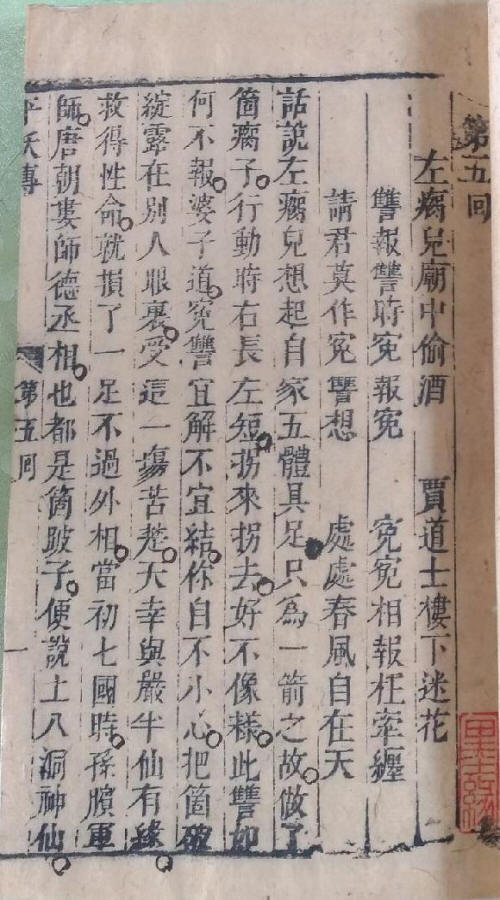 第五回
左瘸兒廟中偷酒 賈道士樓下迷花
讐報讐時寃報寃 寃寃相報枉牽纏
請君莫作寃讐想 處處春風自在天
話說左瘸兒想起自家五體具足只為一箭之故做了
箇瘸子行動時右長左短拐來拐去好不像樣此讐如
何不報婆子道寃讐宜解不宜結你自不小心把箇破
綻露在別人眼裏受這一塲苦楚天幸與嚴半仙有緣
救得性命就損了一足不過外相當初七國時孫臏軍
師唐朝婁師德丞相也都是箇跛子便說上八洞神仙
平妖傳 第五回 一